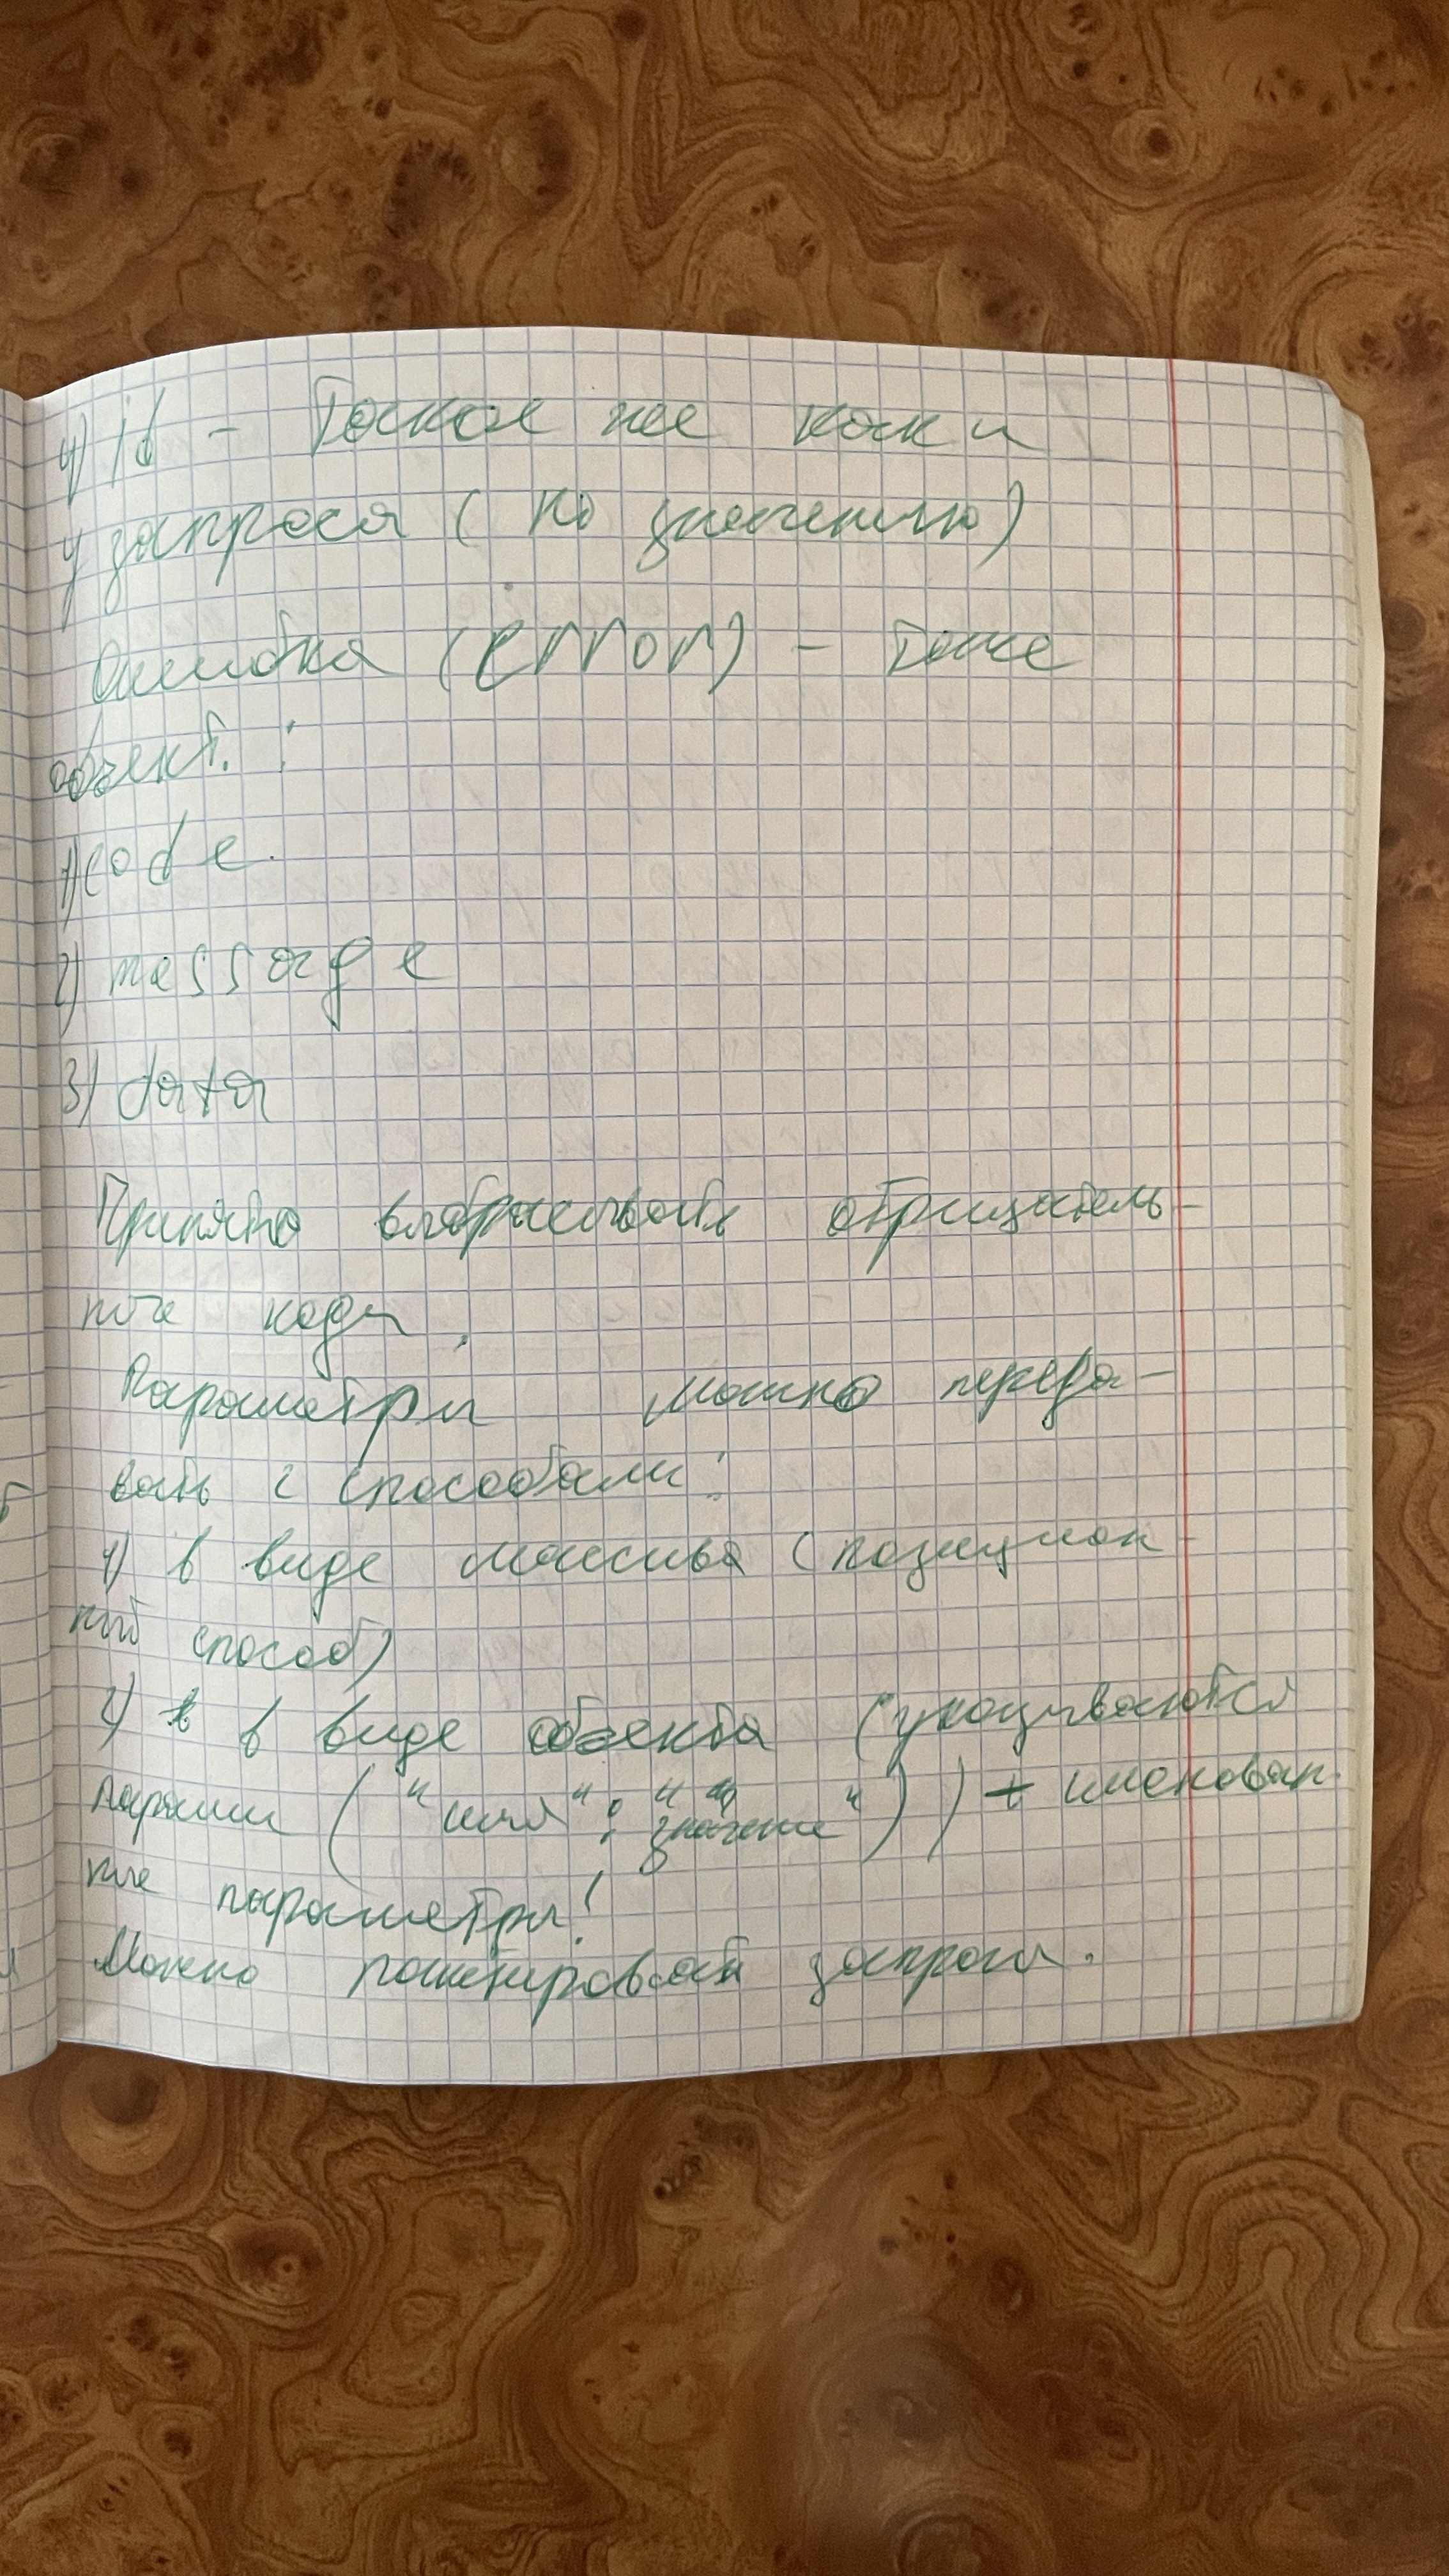 4) id - Такое же как и
у запроса (по значению)
Ошибка (error) - тоже
объект. :
1) code.
2) message
3) data
Принято выбрасывать отрицатель-
ные коды.
Параметры можно переда-
вать 2 способами:
1) в виде массива (позицион
ный способ)
2) в в виде объекта (указываются
парами ("имя" : "значение")) + именован
ные параметры!
Можно запросы.